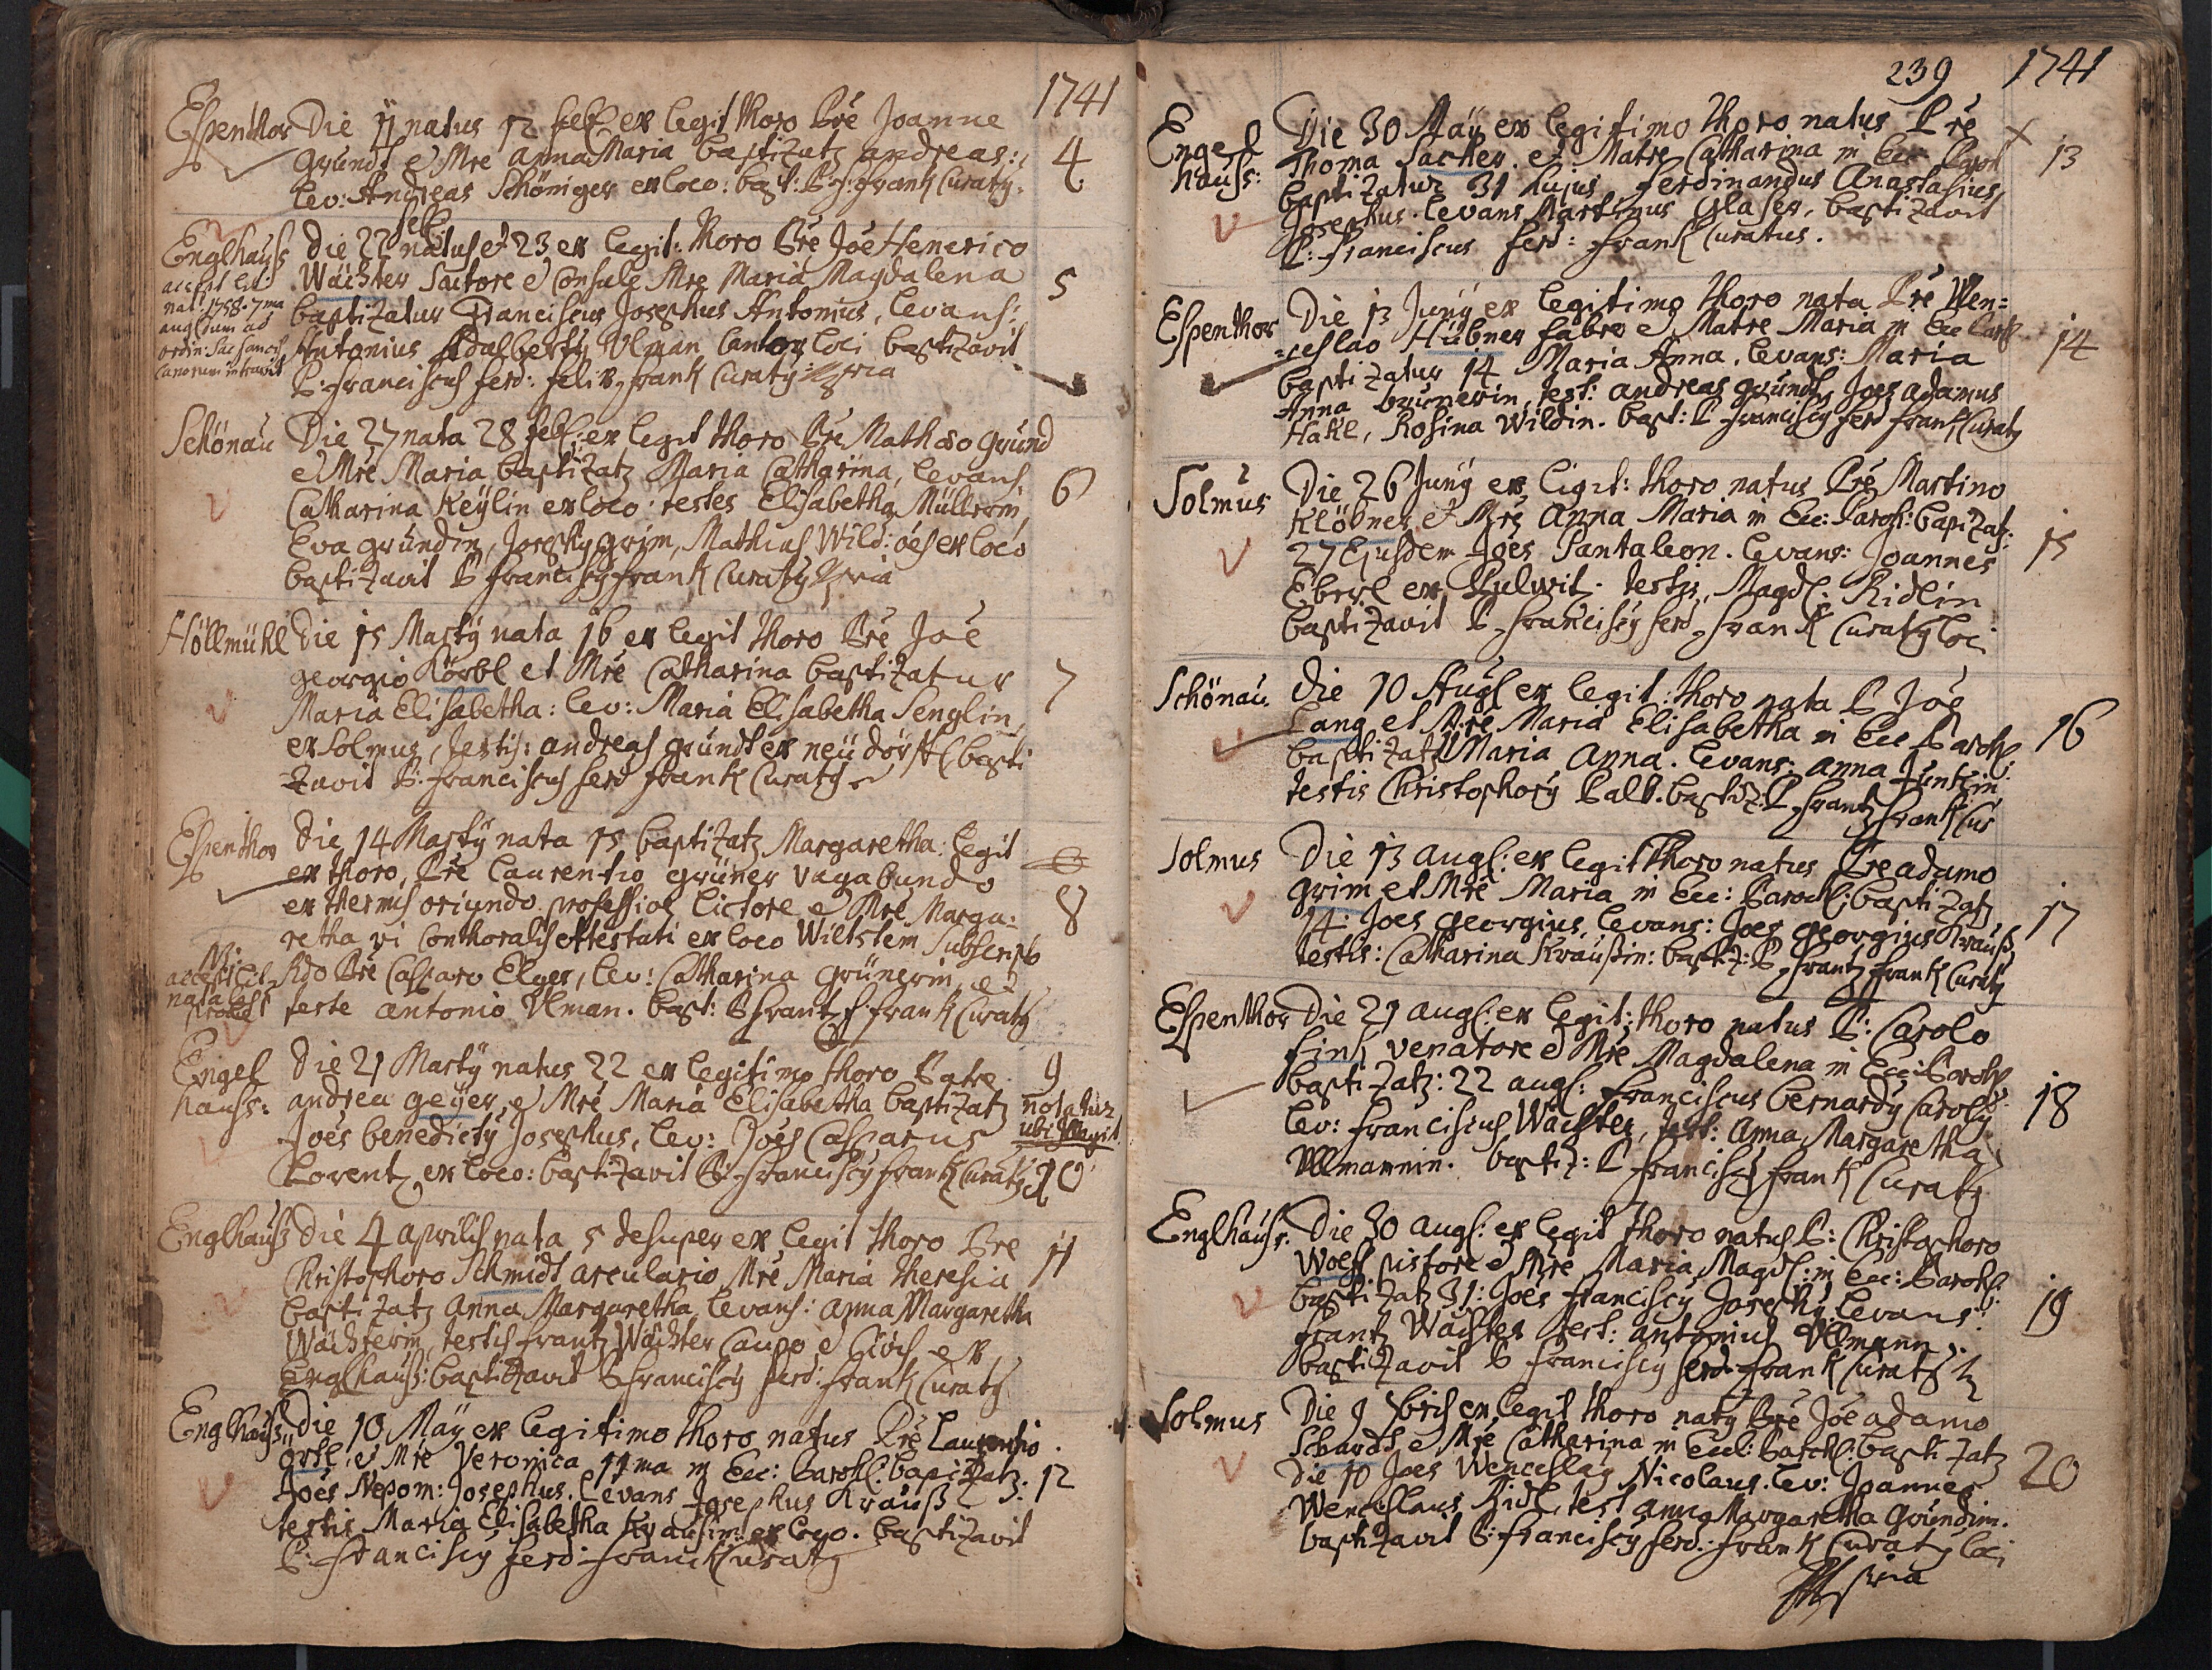 1741
Espenthor Die 11 natus 12 feb: ex legit thoro Pre Joanne
Grundt e Mre Anna Maria baptizatq andreas: 4
Lev: Andreas Schöniger ex loco: bapt: P. frank Curatq.
Englhauss Die 22 feb natus et 23 ex legit: thoro Pre Joe Henerico
Wächter Sartore e Consule Mre Maria Magdalena 5
baptizatur Franciscus Josephus Antonius, Levans:
Antonius Adalbertq Ulman Cantor loci baptizavit
P: Franciscus ferd: felix frank Curatq
accept lit:
nat: 1758. 7ma
aug dum ad
ordin: Sac:
Canonum intravit
Schönau Die 27 nata 28 feb: ex legit thoro Pre Mathaeo Grund
e Mre Maria baptizatq Maria Catharina, Levans
Catharina Keÿlin ex loco testes Elisabetha Müllerin 6
Eva gründin, Josephq grim, Mathias Wild: oes ex loco
baptizavit P franciscq frank Curatq
Höllmühl Die 15 Martÿ nata 16 ex legit thoro Pre Joe
georgio Körbl et Mre Catharina baptizatur 7
Maria Elisabetha: Lev: Maria Elisabetha Senglin
ex Solmus, testis: andreas grundt ex neü dörfl bapti
zavit P. Franciscus ferd frank Curatq
Espenthor Die 14 Martÿ nata 15 baptizatq Margaretha: legit
ex thoro, Pre Laurentio grüner vagabundo
ex thermis oriundo professioe lictore e Mre Marga: 8
retha vi Conthoralis attestati ex loco Wiltstein Subscripto
Ado Pre Casparo Elger, lev: Catharina Grünerin, et
teste antonio Ulman. bapt: P frantz f frank Curatq
Engel Die 21 Martÿ natus 22 ex legitimo thoro Patre 9
hauss: andrea geÿer e Mre Maria Elisabetha baptizatq notatur
Joes benedictq Josephus, lev: Joes Casparus ubi
Lorentz ex loco: baptizavit P. franciscq frank Curatq 10
Englhauß Die 4 aprilis nata 5 desuper ex legit thoro Pre 11
Christophoro Schmidt arculario Mre Maria theresia
baptizatq Anna Margaretha Levans: anna Margaretha
Wächterin, testis frantz Wächter Caupo e Civis ex
Englhauß: baptizavit P franciscq ferd: frank Curatq
Englhauß Die 10 Maÿ ex legitimo thoro natus Pre Laurentio
ortl, e Mre Veronica 11ma in Ecc: Paroch: baptizatq: 12
Joes Nepom: Josephus. Levans Josephus Krauß
testis Maria Elisabetha Kraußin ex loco. baptizavit
P: franciscq ferd: franck Curatq
239 1741
Engel Die 30 Maÿ ex legitimo thoro natus Pre
hauss: Thoma Sacher et Matre Catharina in Ecc Paroch 13
baptizatur 31 hujus ferdinandus Anastasius
Josephus. Levans Martinus Glaser, baptizavit
P: franciscus ferd: frank Curatus.
Espenthor Die 13 Junÿ ex legitimo thoro nata Pre Wen=
=ceslao Hübner fabro e Matre Maria in Ecc Paroch 14
baptizatur 14 Maria Anna. Levans: Maria
Anna brunerin, test: andreas grundt, Joes adamus
Hakl, Rosina Wildin. bapt: P franciscq ferd frank Curatq
Solmus Die 26 Junÿ ex legit: thoro natus Pre Martino
Klöbner et Mre Anna Maria in Ecc: Paroch: baptizatq: 15
27 Ejusdem Joes Pantaleon. Levans: Joannes
Eberl ex Pulwit: testis, Magd: Ridlin
baptizavit P. franciscq ferd. frank Curatq loci
Schönau. Die 10 Augl ex legit: thoro nata P Joe
Lang et Mre Maria Elisabetha in Ecc Paroch 16
baptizatq Maria Anna. Levans: anna
testis Christophorq Palb. baptiz: P frantz frank Cur
Solmus Die 13 augl: ex legit thoro natus Pre adamo
grim et Mre Maria in Ecc: Paroch: baptizatq 17
14: Joes georgius, Levans: Joes georgius Krauß
testis: Catharina Kraußin: baptiz: P. frantz frank Curatq
Espenthor Die 21 augl: ex legit: thoro natus P: Carolo
Fink venatore e Mre Magdalena in Ecc: Paroch
baptizatq: 22 augl: franciscus bernardq Carolq 18
Lev: franciscus Wächter, test: anna Margaretha
Ullmannin. baptiz: P franciscq frank Curatq
Englhauß: Die 30 augl: ex legit thoro natus P: Christophoro
Wolf pistore e Mre Maria Magdl: in Ecc: Paroch:
baptizatq 31: Joes franciscq Josephq. Levans: 19
frantz Wächter test: antonius Ullmann.
baptizavit P franciscq ferd. frank Curatq
Solmus Die 9 7bris ex legit thoro natq Pre Joe adamo
Schardt e Mre Catharina in Eccl: Paroch: baptizatq
Die 10 Joes Wenceslaq Nicolaus. Lev: Joannes 20
Wenceslaus Ridl, test anna Margaretha Gründin.
baptizavit P: franciscq ferd: frank Curatq loci